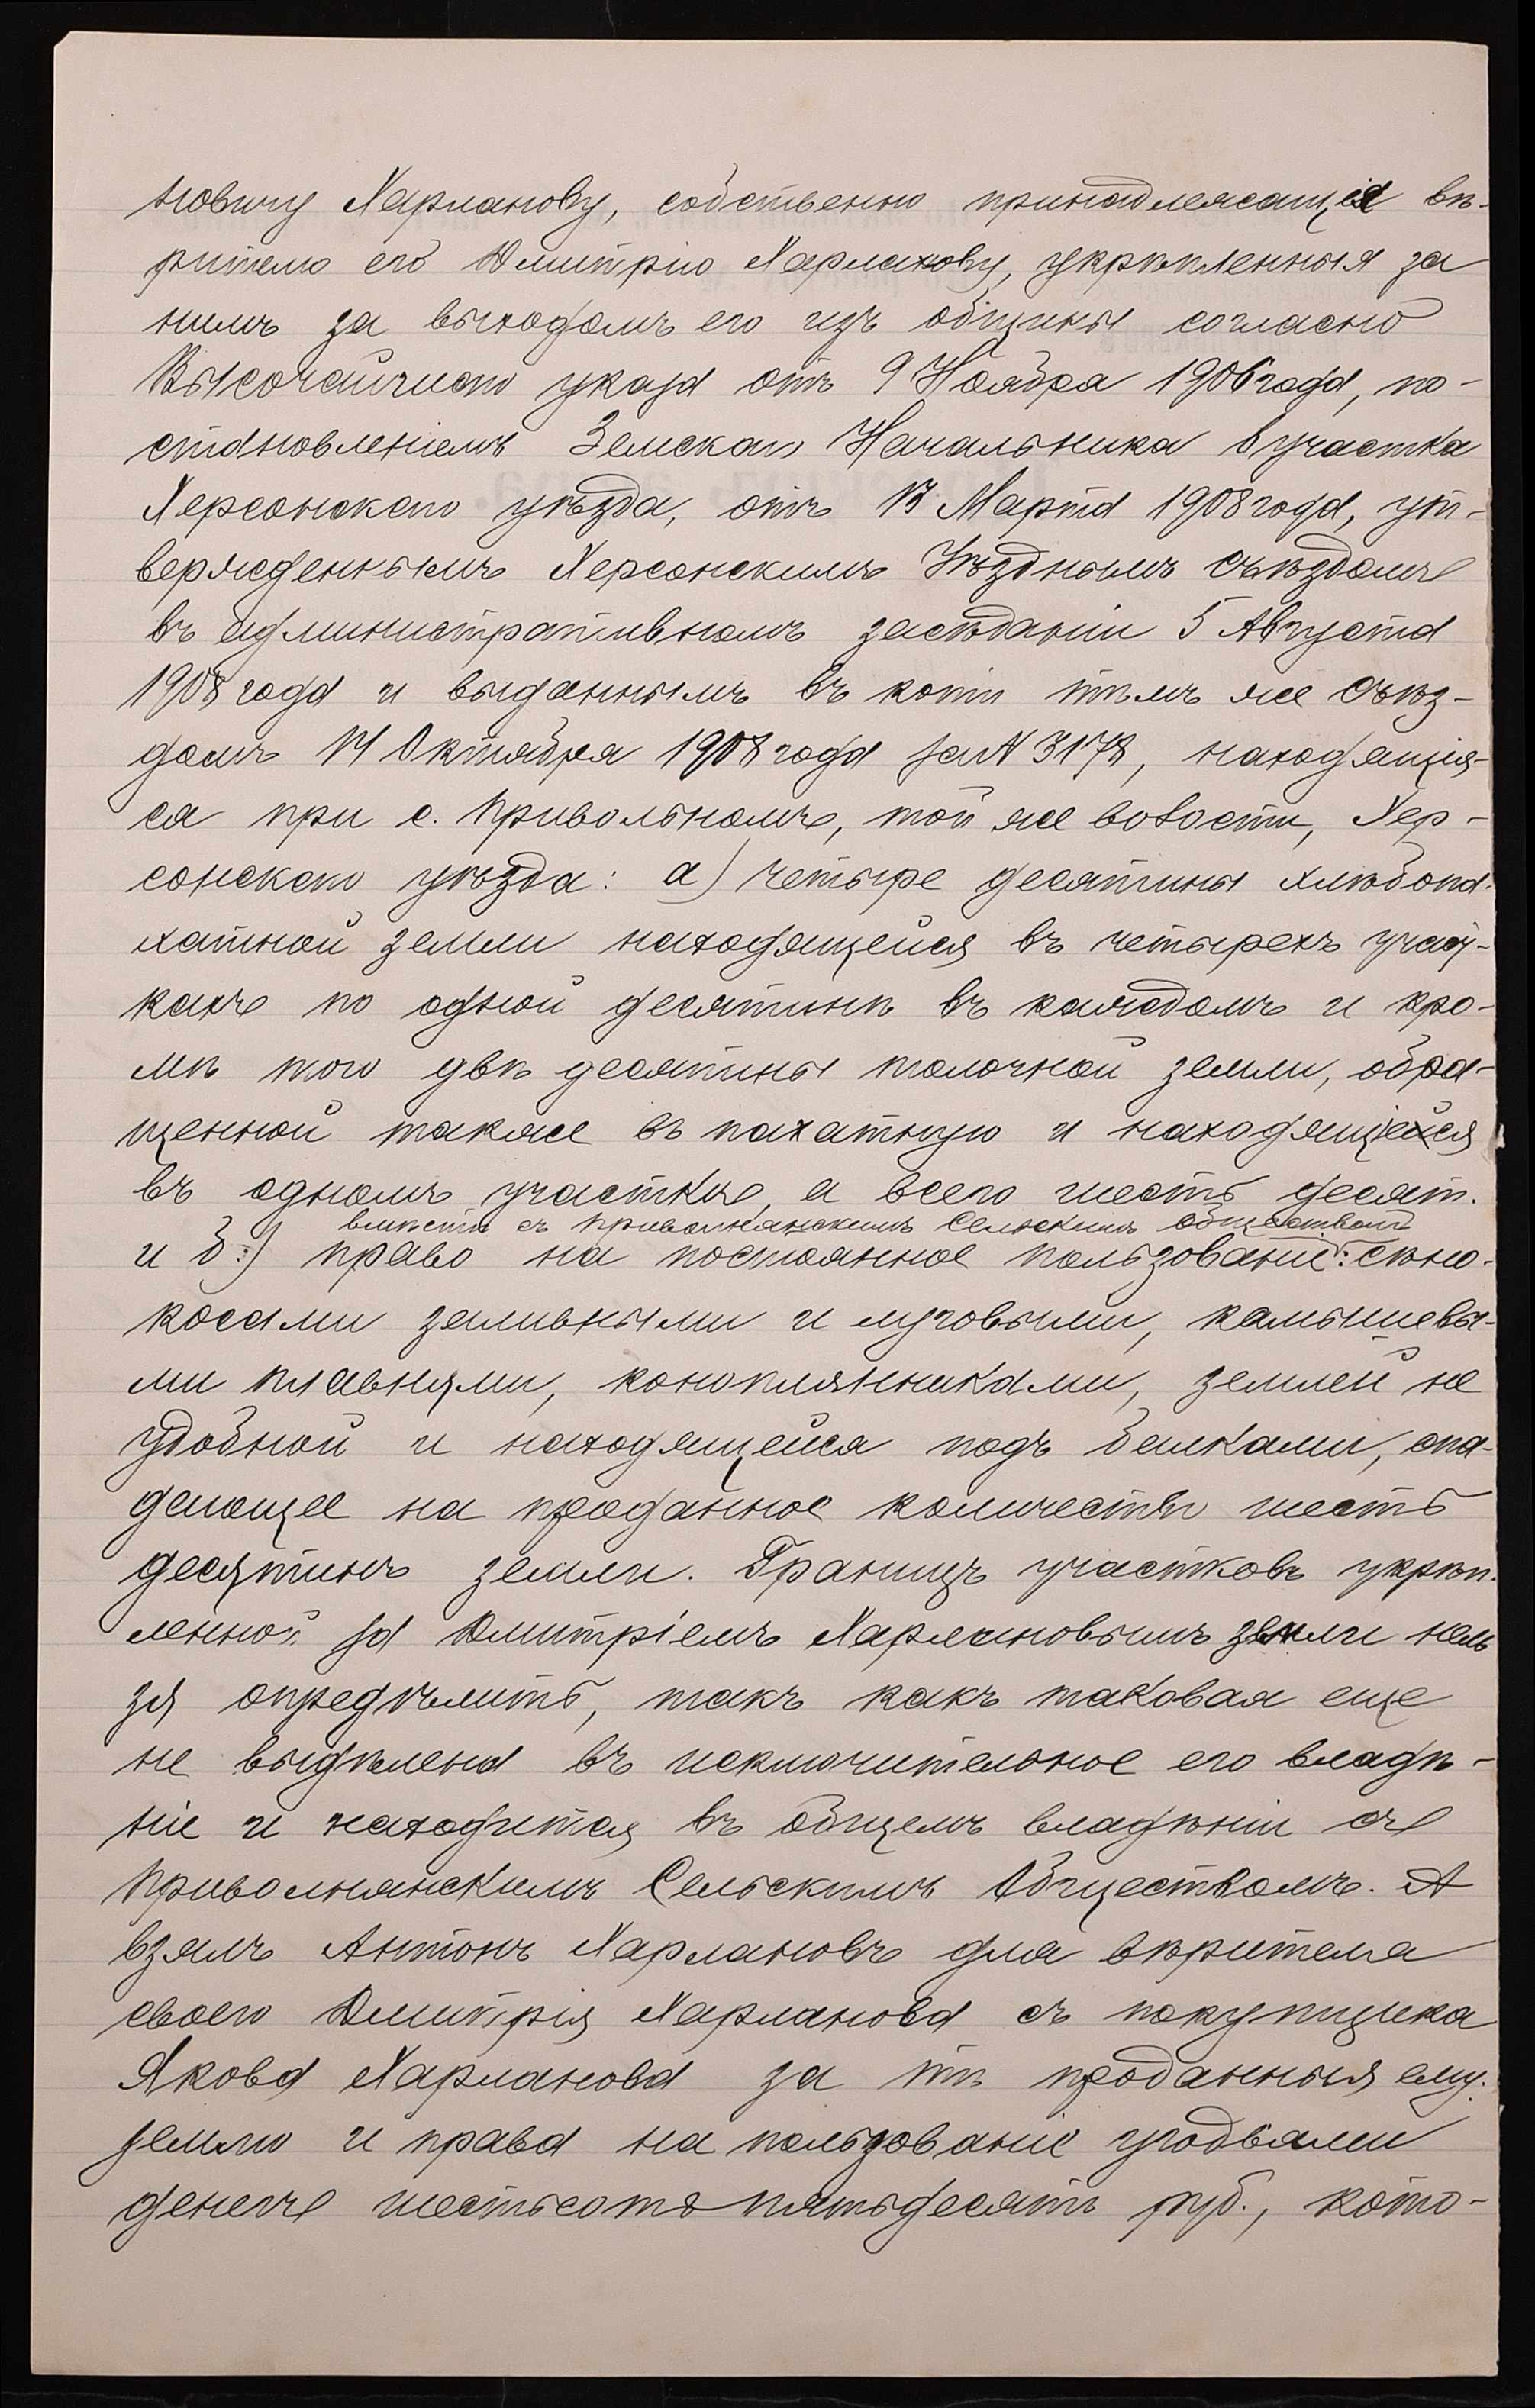 новичу Харланову, собственно принадлежащія вѣ-
рителю его Дмитрію Харланову, укрѣпленныя за
нимъ за выходомъ его изъ общины согласно
Высочайшаго указа отъ 9 Ноября 1906 года, по-
становленіемъ Земскаго Начальника 6 участка
Херсонскаго уѣзда, отъ 13 Марта 1908 года, ут-
вержденнымъ Херсонскимъ Уѣзднымъ Съѣздомъ
въ административномъ засѣданіи 5 Августа
1908 года и выданнымъ въ копіи тѣмъ же Съѣз-
домъ 14 Октября 1908 года за N 3178, находящія-
ся при с. Привольномъ, той же волости, Хер-
сонскаго уѣзда: а) четыре десятины хлѣбопа-
хатной земли находящейся въ четырехъ участ-
кахъ по одной десятинѣ въ каждомъ и кро-
мѣ того двѣ десятины толочной земли, обра-
щенной также въ пахатную и находящейся
въ одномъ участкѣ, а всего шесть десят.
вмѣстѣ съ Привольнянскимъ Сельскимъ Обществомъ
и б:) право на постоянное пользованіе: сѣно-
косами заливными и луговыми, камышевы-
ми плавнями, коноплянниками, землей не
удобной и находящейся подъ балками, спа-
дающее на проданное количество шесть
десятинъ земли. Границъ участковъ укрѣп-
ленной за Дмитріемъ Харлановымъ земли нель
зя опредѣлить, такъ какъ таковая еще
не выдѣлена въ исключительное его владѣ-
ніе и находится въ общемъ владѣніи съ
Привольнянскимъ Сельскимъ Обществомъ. А
взялъ Антонъ Харлановъ для вѣрителя
своего Дмитрія Харланова съ покупщика
Якова Харланова за тѣ проданныя ему
землю и права на пользованіе угодьями
денегъ шестьсотъ пятьдесятъ руб., кото-